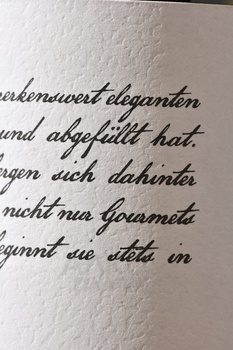 erkenswert eleganten
und abgefüllt hat.
ergen sich dahinter
nicht nur Gourmets
eginnt sie stets in